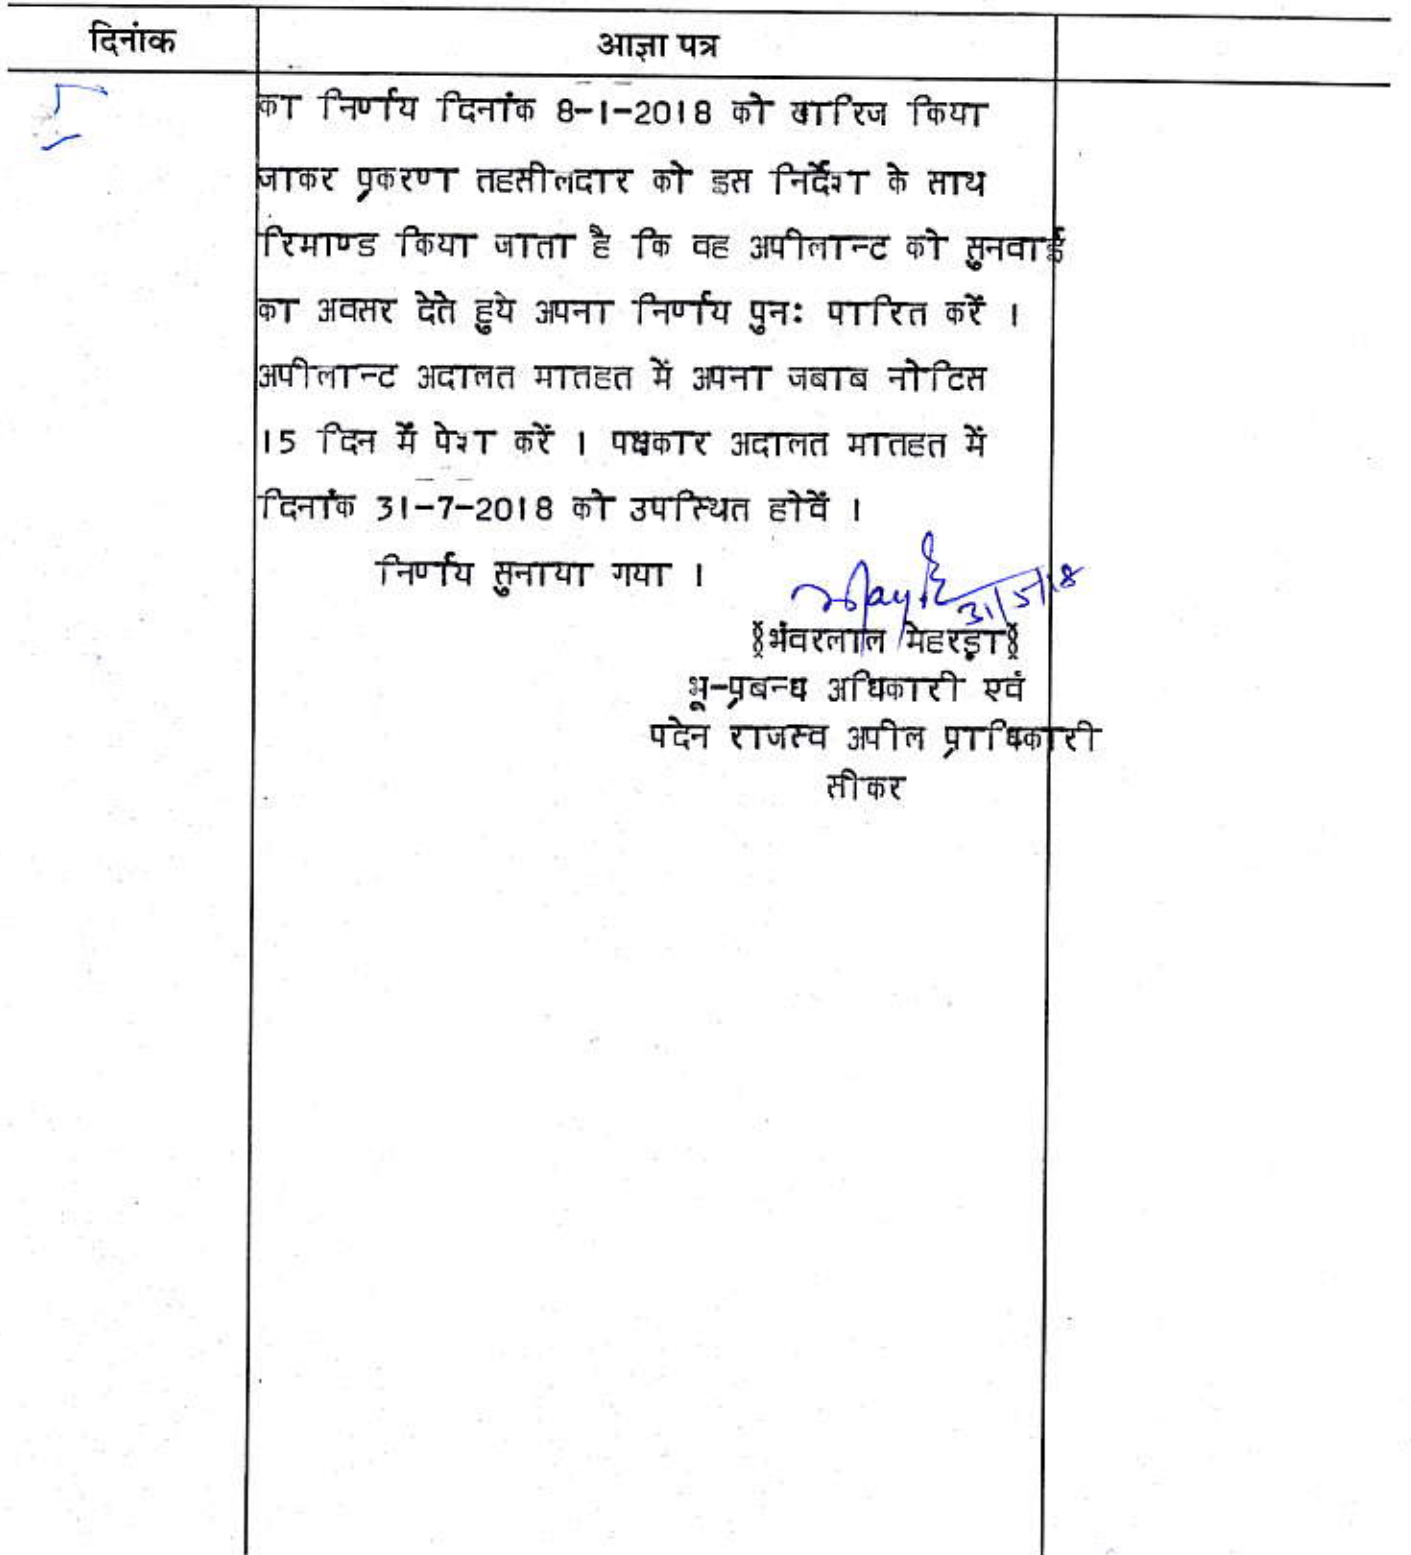 दिनांक
आज्ञा पत्र
का निर्णय दिनांक 8-1-2018 को खारिज किया
जाकर प्रकरण तहसीलदार को इस निर्देश के साथ
रिमाण्ड किया जाता है कि वह अपीलान्ट को सुनवाई
का अवसर देते हुये अपना निर्णय पुनः पारित करें ।
अपीलान्ट अदालत मातहत में अपना जबाब नोटिस
15 दिन में पेश करें । पक्षकार अदालत मातहत में
दिनाँक 31-7-2018 को उपस्थित होवें ।
निर्णय सुनाया गया ।
31/5/18
(भंवरलाल मेहरड़ा)
भू-प्रबन्ध अधिकारी एवं
पदेन राजस्व अपील प्राधिकारी
सीकर